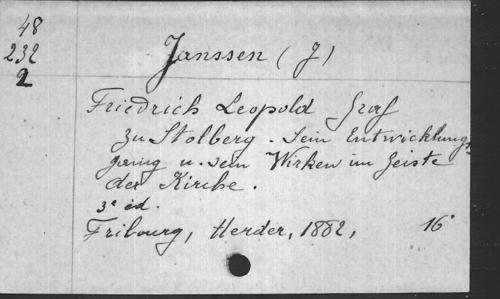 48
232
2
Janssen (J)
Friedrich Leopold Graf
zu Stolberg. Sein Entwicklungs
gang u. sein Wirken im Geiste
der Kirche.
3e éd.
Fribourg, Herder, 1882, 16°